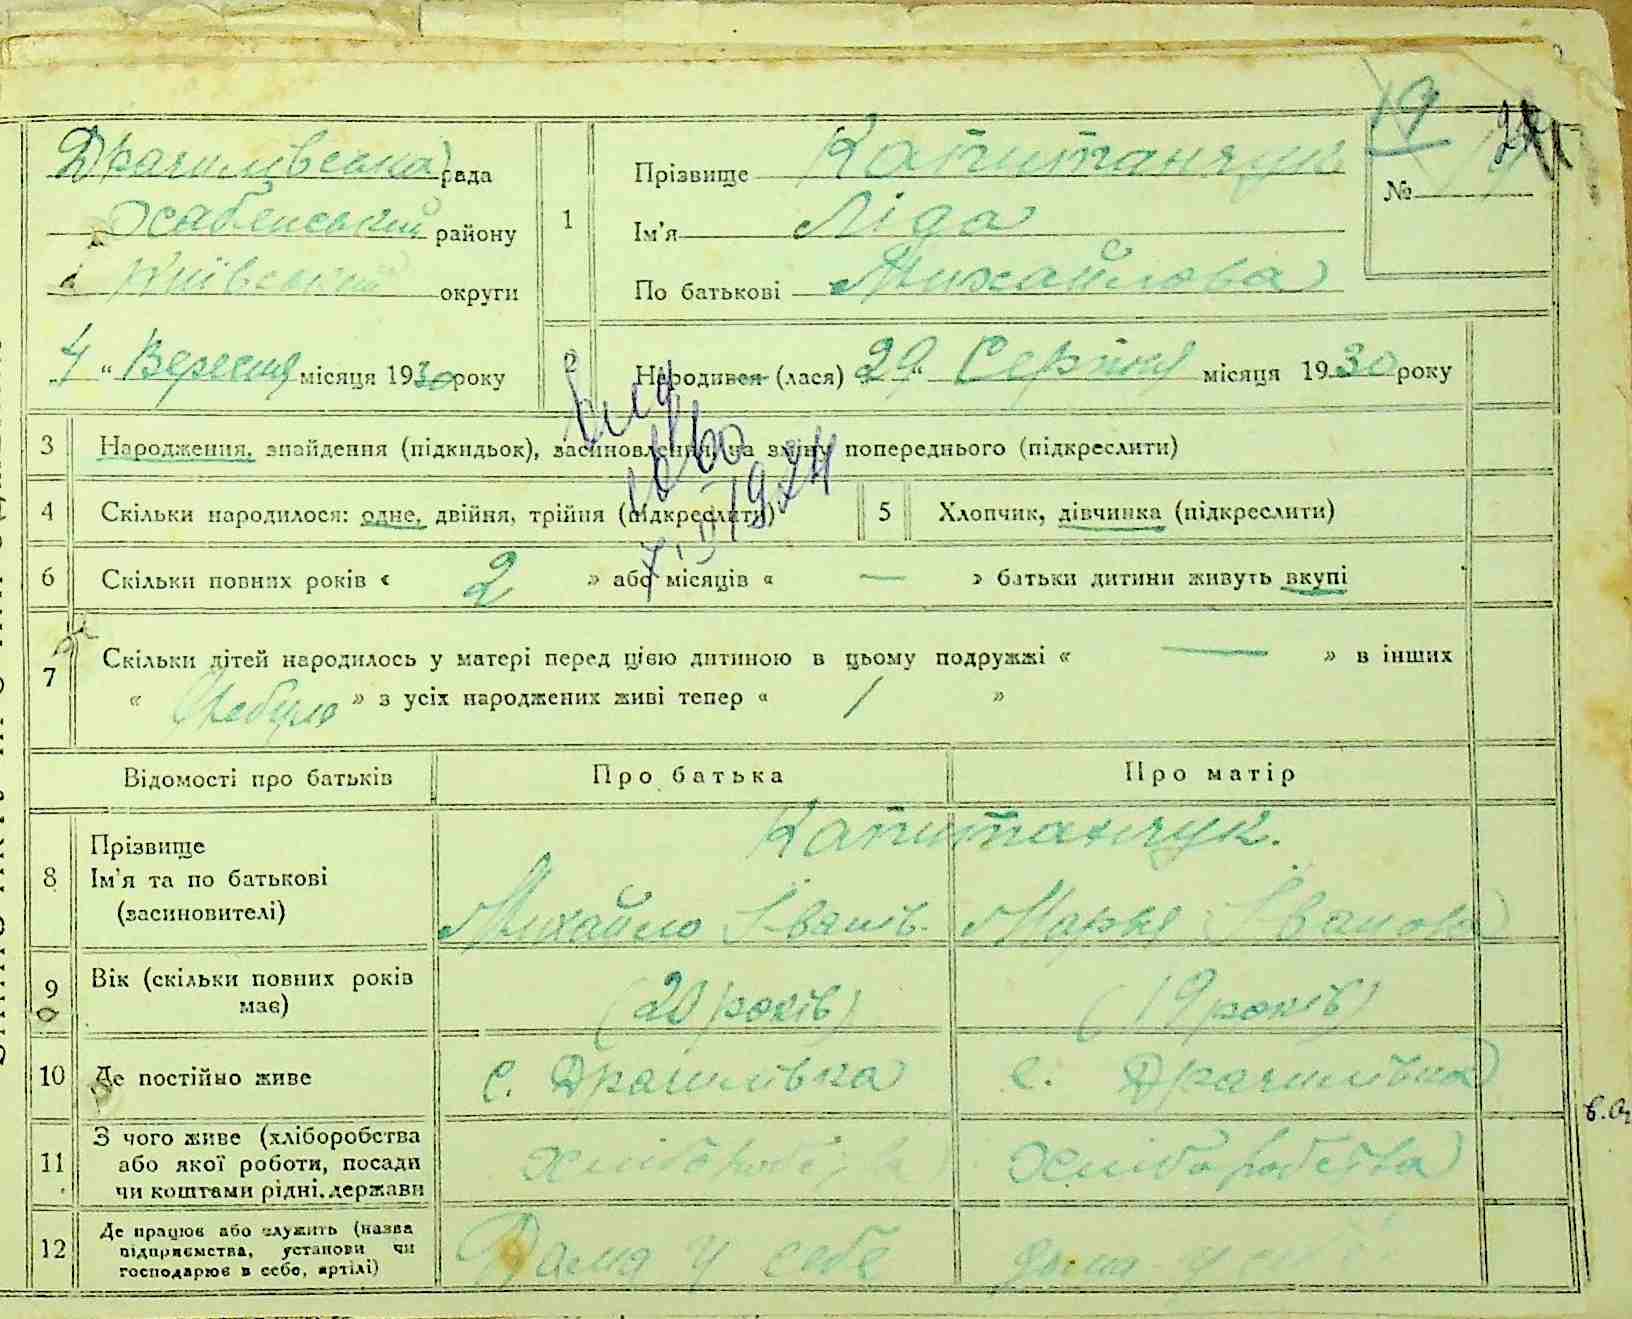 19
Драчилівська рада
Хабенський району
Київський округи
4 " Вересня місяця 1930 року
1
Прізвище Капитанчук
Ім'я Ліда
По батькові Михайлова
№
2
Народився (лася) 29 " Серпня місяця 1930 року
3 Народження, знайдення (підкидьок), засиновлення, на зміну попереднього (підкреслити)
4 Скільки народилося: одне, двійня, трійня (підкреслити) 5 Хлопчик, дівчинка (підкреслити)
6 Скільки повних років « 2 » або місяців « — » батьки дитини живуть вкупі
7 Скільки дітей народилось у матері перед цією дитиною в цьому подружжі « — » в інших
« Небуло » з усіх народжених живі тепер « 1 »
Відомості про батьків Про батька Про матір
8 Прізвище Капитанчук.
Ім'я та по батькові
(засиновителі) Михайло Іванів. Марія Іванова
9 Вік (скільки повних років
має) (20 років) (19 років)
10 Де постійно живе с. Драчилівка с. Драчилівка
11 З чого живе (хліборобства
або якої роботи, посади
чи коштами рідні, держави хліборобства хліборобства
12 Де працює або служить (назва
підприємства, установи чи
господарює в себе, артілі) Дома у себе дома у себе